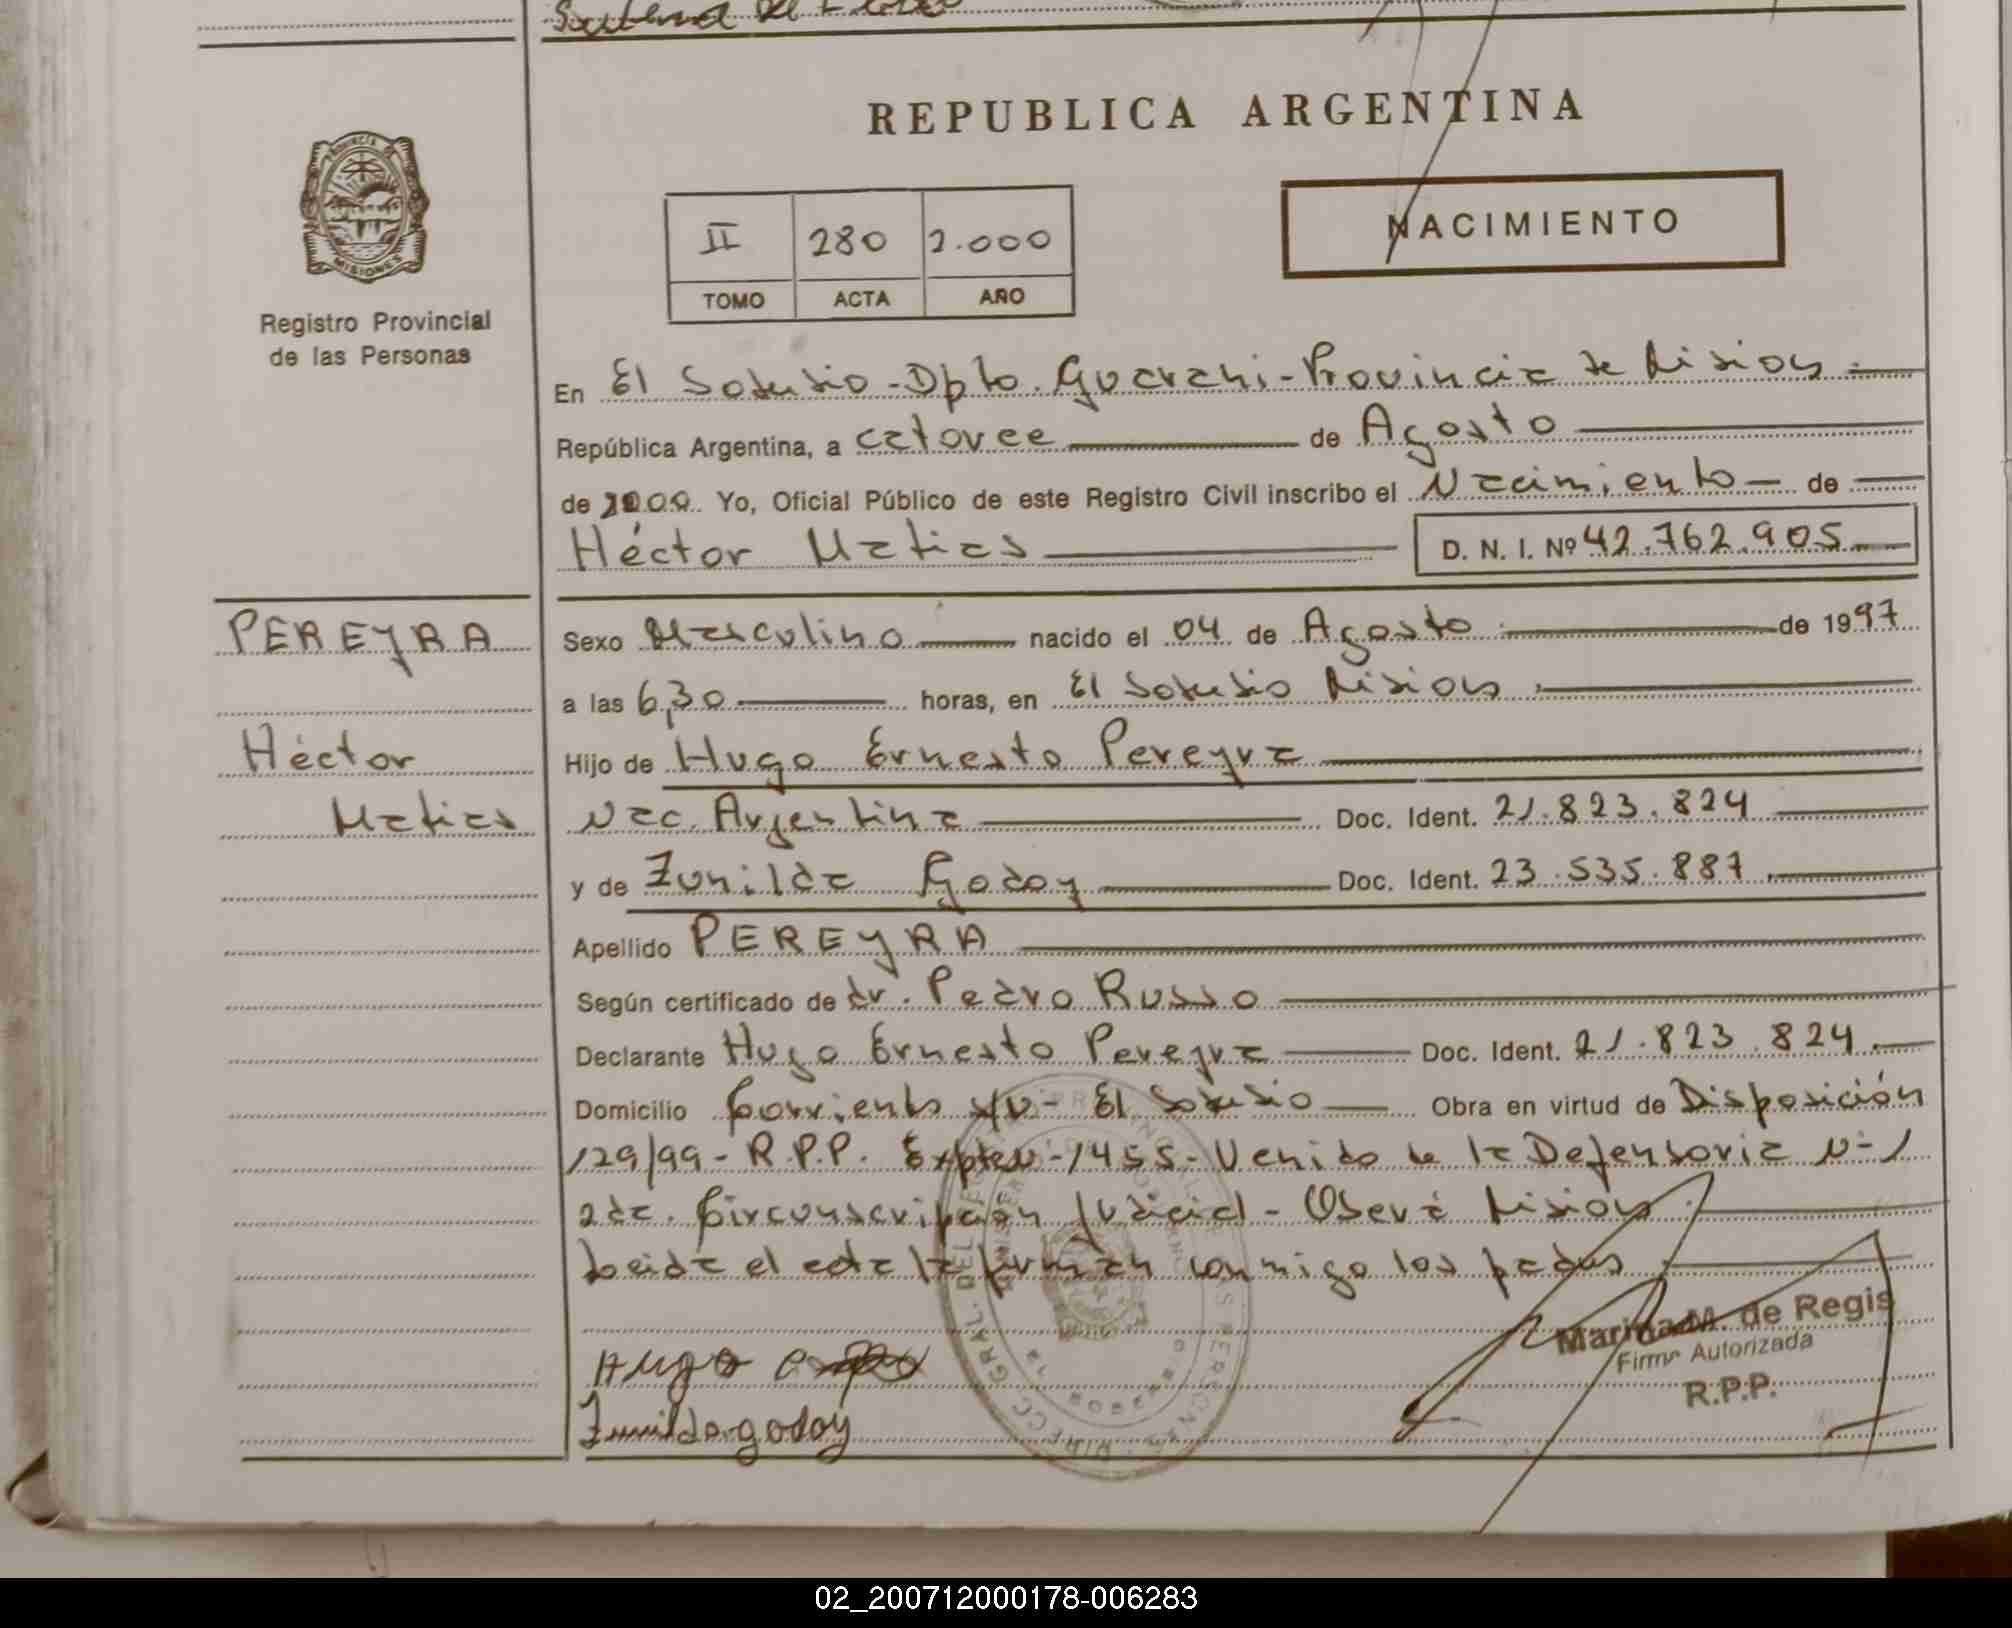 REPUBLICA ARGENTINA
PROVINCIA DE
MISIONES
Registro Provincial
de las Personas
II 280 2.000
TOMO ACTA AÑO
NACIMIENTO
En El Soberbio - Dpto. Guarani - Provincia de Misiones.
República Argentina, a catorce de Agosto
de 2000. Yo, Oficial Público de este Registro Civil inscribo el Nacimiento de
Héctor Matias D. N. I. Nº 42.762.905
PEREYRA
Héctor
Matias
Sexo Masculino nacido el 04 de Agosto de 1997
a las 6,30 horas, en El Soberbio Misiones.
Hijo de Hugo Ernesto Pereyra
Nac. Argentina Doc. Ident. 21.823.824
y de Zunilda Godoy Doc. Ident. 23.535.887
Apellido PEREYRA
Según certificado de dr. Pedro Russo
Declarante Hugo Ernesto Pereyra Doc. Ident. 21.823.824.
Domicilio Corrientes s/n - El Soberbio Obra en virtud de Disposición
129/99 - R.P.P. Expte N-1455 - Venido de la Defensoria N-1
2da. Circunscripción Judicial - Oberá Misiones.
Leida el acta la firman conmigo los padres.
Hugo
Zunilda godoy
Marina M. de Regis
Firma Autorizada
R.P.P.
02_200712000178-006283